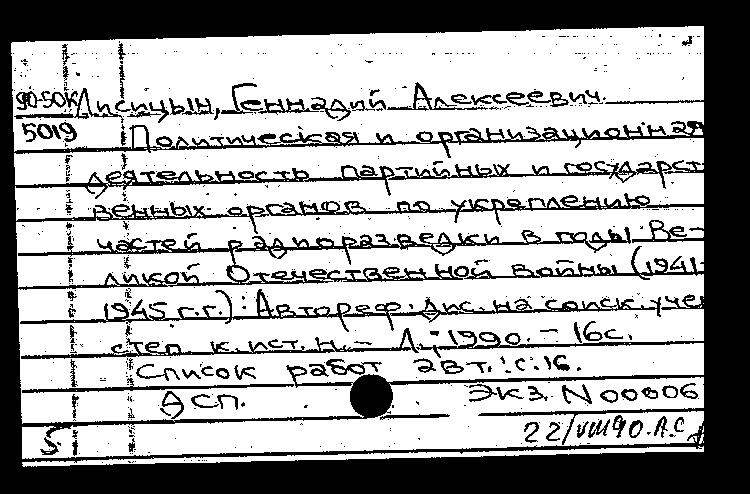 90-50К Лисицын, Геннадий Алексеевич.
5019 Политическая и организационная
деятельность партийных и государст-
венных органов по укреплению
частей радиоразведки в годы Ве-
ликой Отечественной войны (1941-
1945 г.г.): Автореф. дис. на соиск. учен
степ к. ист. н. - Л., 1990. - 16с.
Список работ авт.: с. 16.
ДСП. Экз. N 00006
5 22/VIII90. А.С